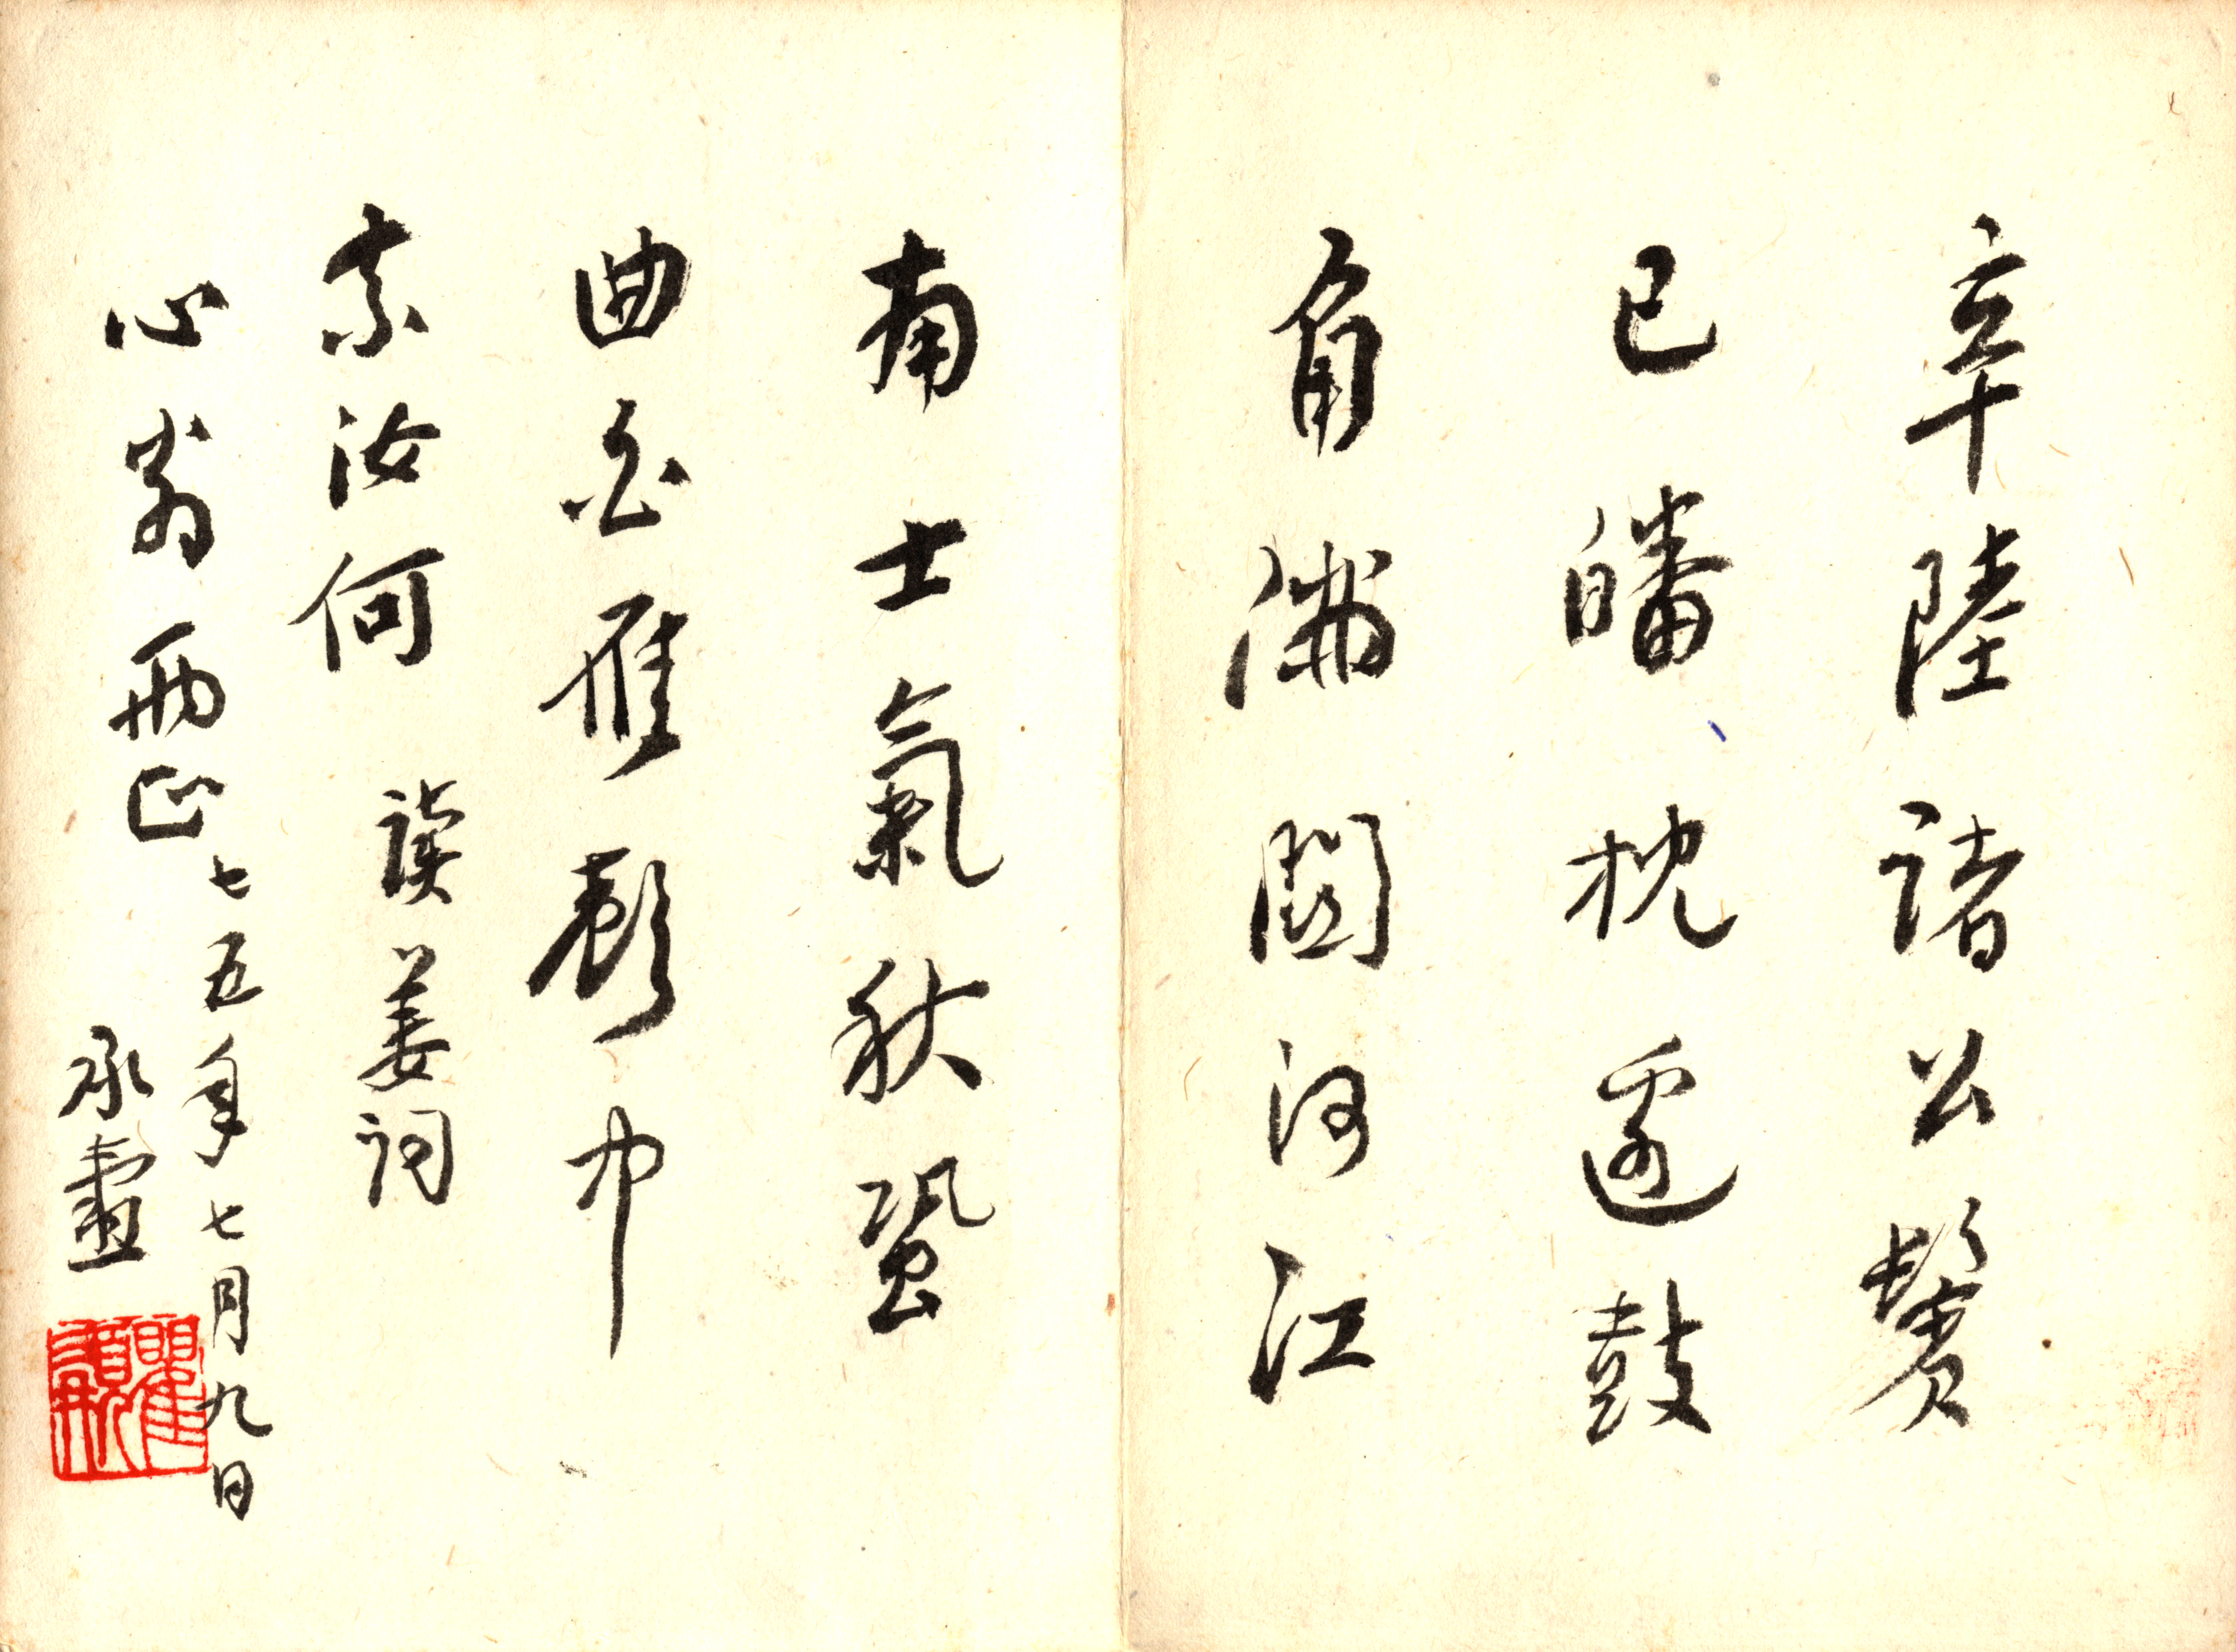 辛陸諸公鬢
已皤枕邊鼓
角滿關河江
南士氣秋蛩
曲白雁聲中
奈汝何
讀姜詞
心翁兩正
七五年七月九日
承燾
瞿髯